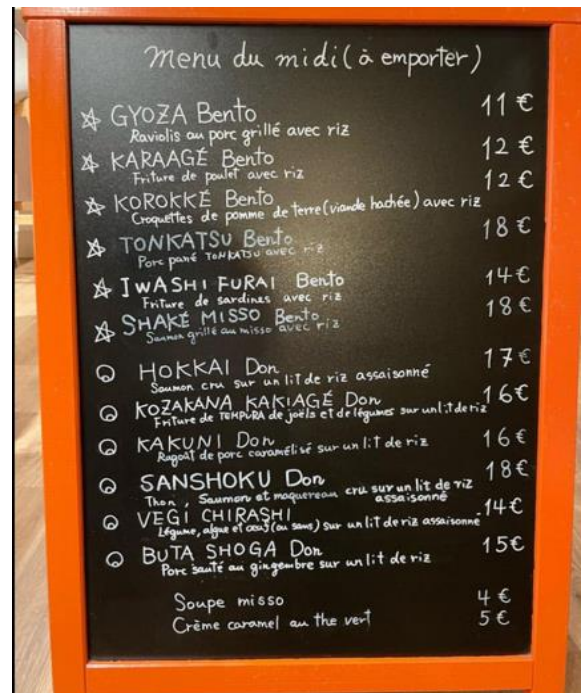 Menu du midi (à emporter)
☆ GYOZA Bento 11 €
Raviolis au porc grillé avec riz
☆ KARAAGÉ Bento 12 €
Friture de poulet avec riz
☆ KOROKKÉ Bento 12 €
Croquettes de pomme de terre (viande hachée) avec riz
☆ TONKATSU Bento 18 €
Porc pané TONKATSU avec riz
☆ IWASHI FURAI Bento 14 €
Friture de sardines avec riz
☆ SHAKÉ MISSO Bento 18 €
Saumon grillé au misso avec riz
HOKKAI Don 17 €
Saumon cru sur un lit de riz assaisonné
KOZAKANA KAKIAGÉ Don 16 €
Friture de TEMPURA de joëls et de légumes sur un lit de riz
KAKUNI Don 16 €
Ragoût de porc caramélisé sur un lit de riz
SANSHOKU Don 18 €
Thon, Saumon et maquereau cru sur un lit de riz
assaisonné
VEGI CHIRASHI 14 €
Légume, algue et oeuf (ou sans) sur un lit de riz assaisonné
BUTA SHOGA Don 15 €
Porc sauté au gingembre sur un lit de riz
Soupe misso 4 €
Crème caramel au the vert 5 €